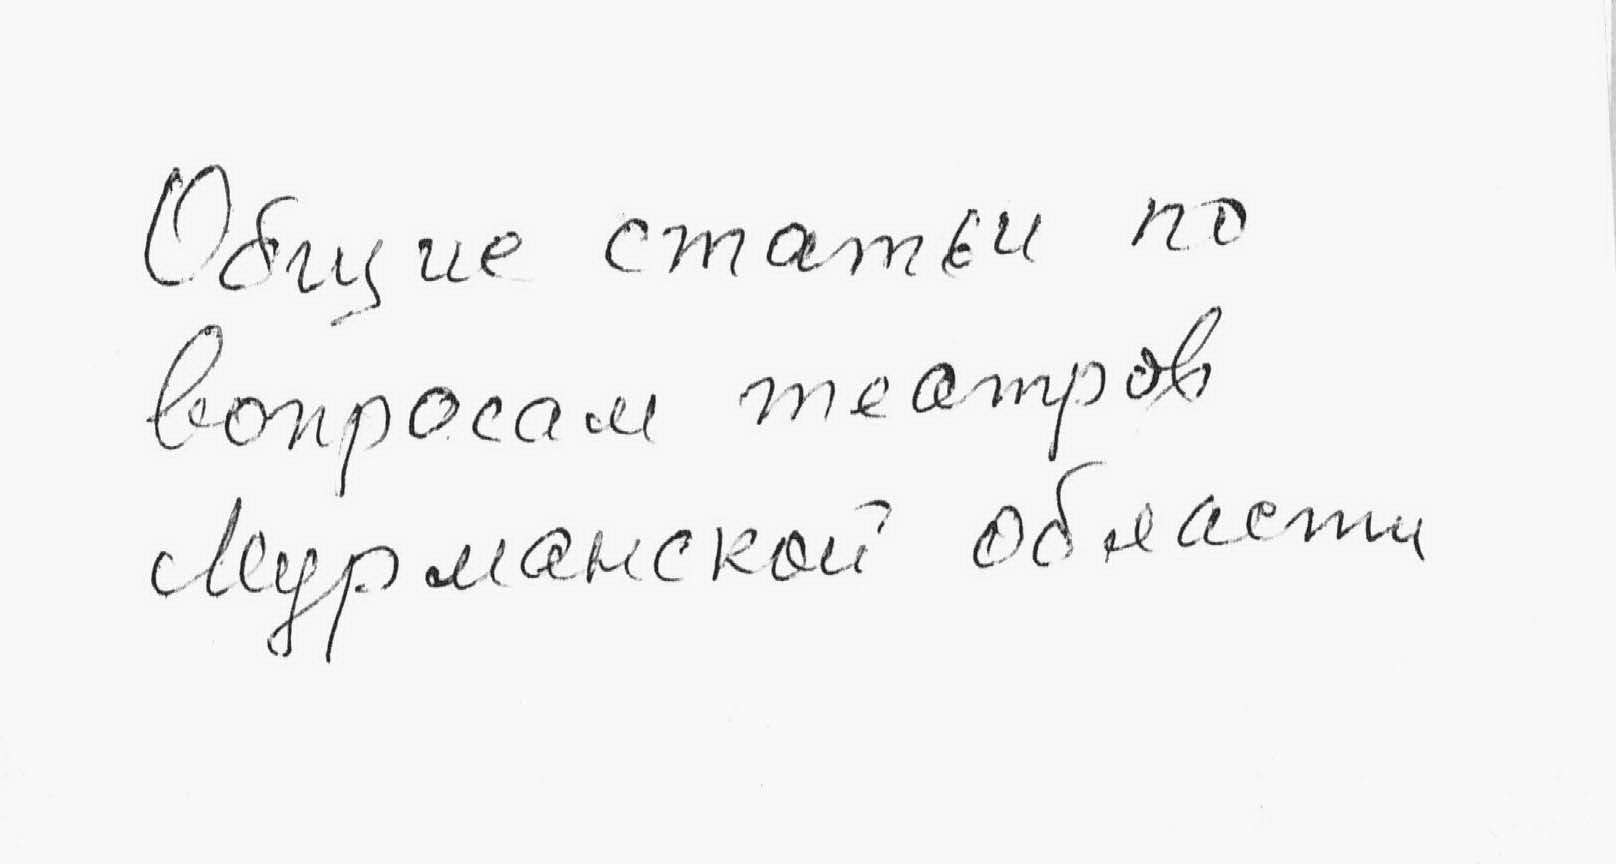 Общие статьи по
вопросам театров
Мурманской области